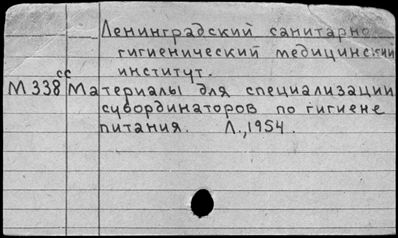 Ленинградский санитарно
гигиенический медицинский
институт.
сс
М 338 Материалы для специализации
субординаторов по гигиене
питания. Л., 1954.